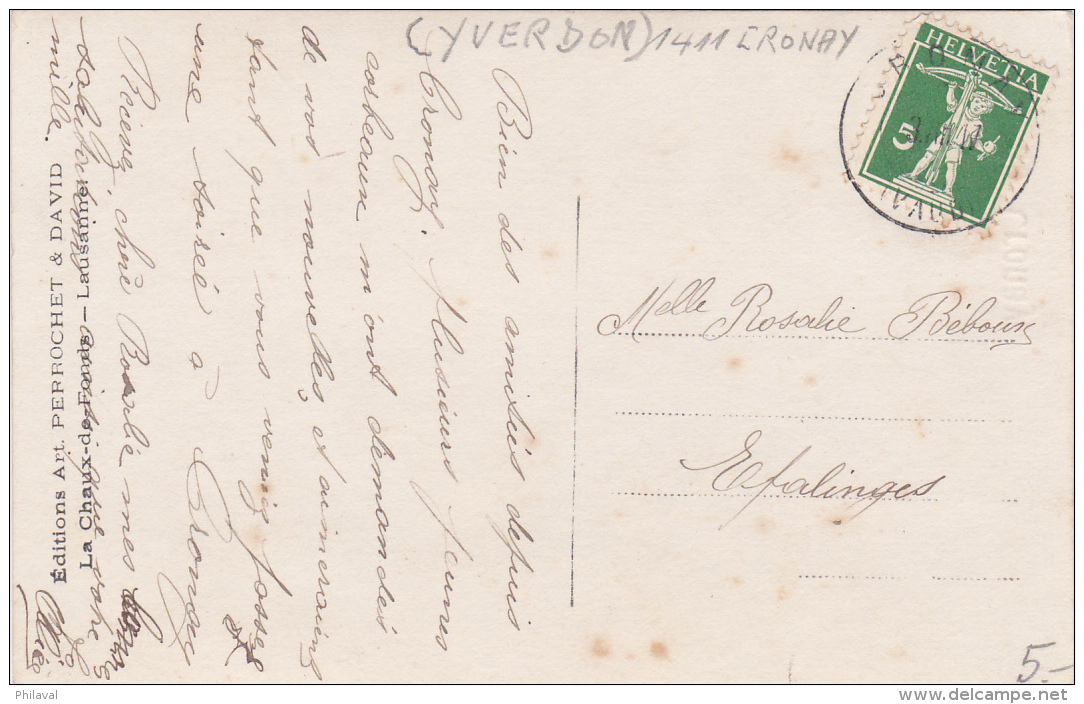 (YVERDON) 1411 CRONAY
HELVETIA
5
POMY
(VAUD)
Bien des amitiés depuis
Cronay. Plusieurs jeunes
corbeaux m'ont demandés
de vos nouvelles, et aimeraient
tant que vous veniez passer
une soirée à Cronay
Recevez chère Rosalie mes
salutations
mille
Éditions Art. PERROCHET & DAVID
La Chaux-de-Fonds — Lausanne
Melle Rosalie Béboux
Epalinges
5.-
Philaval
delcampe.net